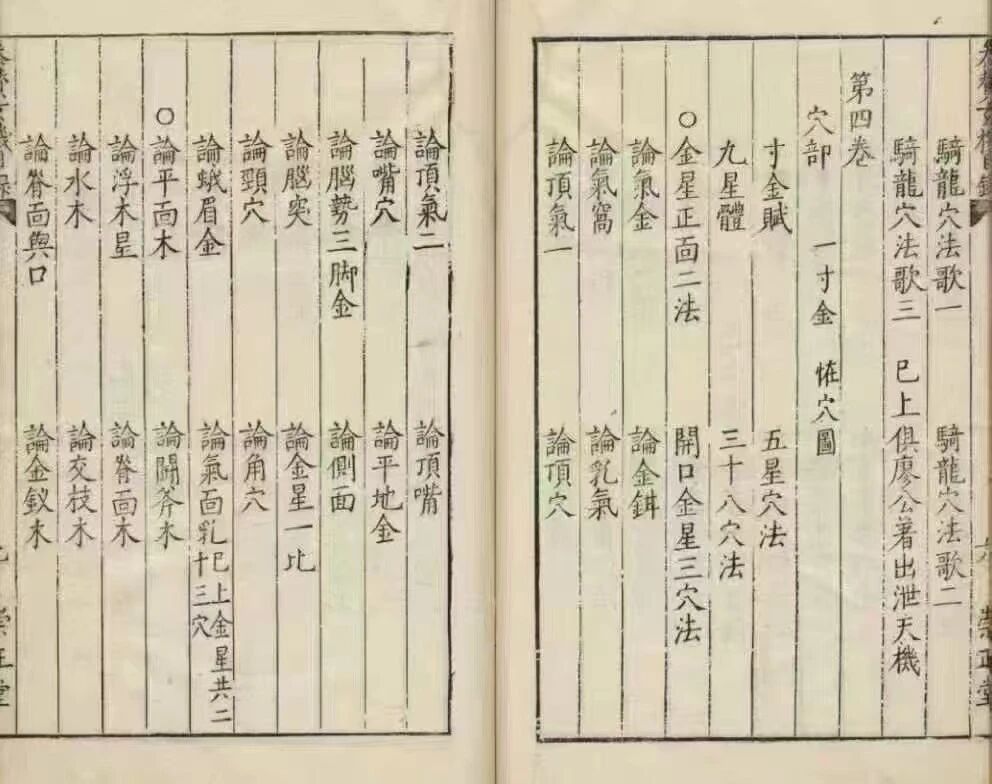 騎龍穴法歌一 騎龍穴法歌二
騎龍穴法歌三 已上俱廖公著出泄天機
第四卷
穴部 一寸金 恠穴圖
寸金賦 五星穴法
九星體 三十八穴法
○金星正面二法 開口金星三穴法
論氣金 論金鉺
論氣窩 論乳氣
論頂氣一 論頂穴
崇正堂
論頂氣二 論頂嘴
論嘴穴 論平地金
論腦勢三脚金 論側面
論腦突 論金星一比
論頸穴 論角穴
論蛾眉金 論氣面乳已上金星共二十三穴
○論平面木 論鬪斧木
論浮木星 論脊面木
論水木 論交枝木
論脊面與口 論金釵木
崇正堂